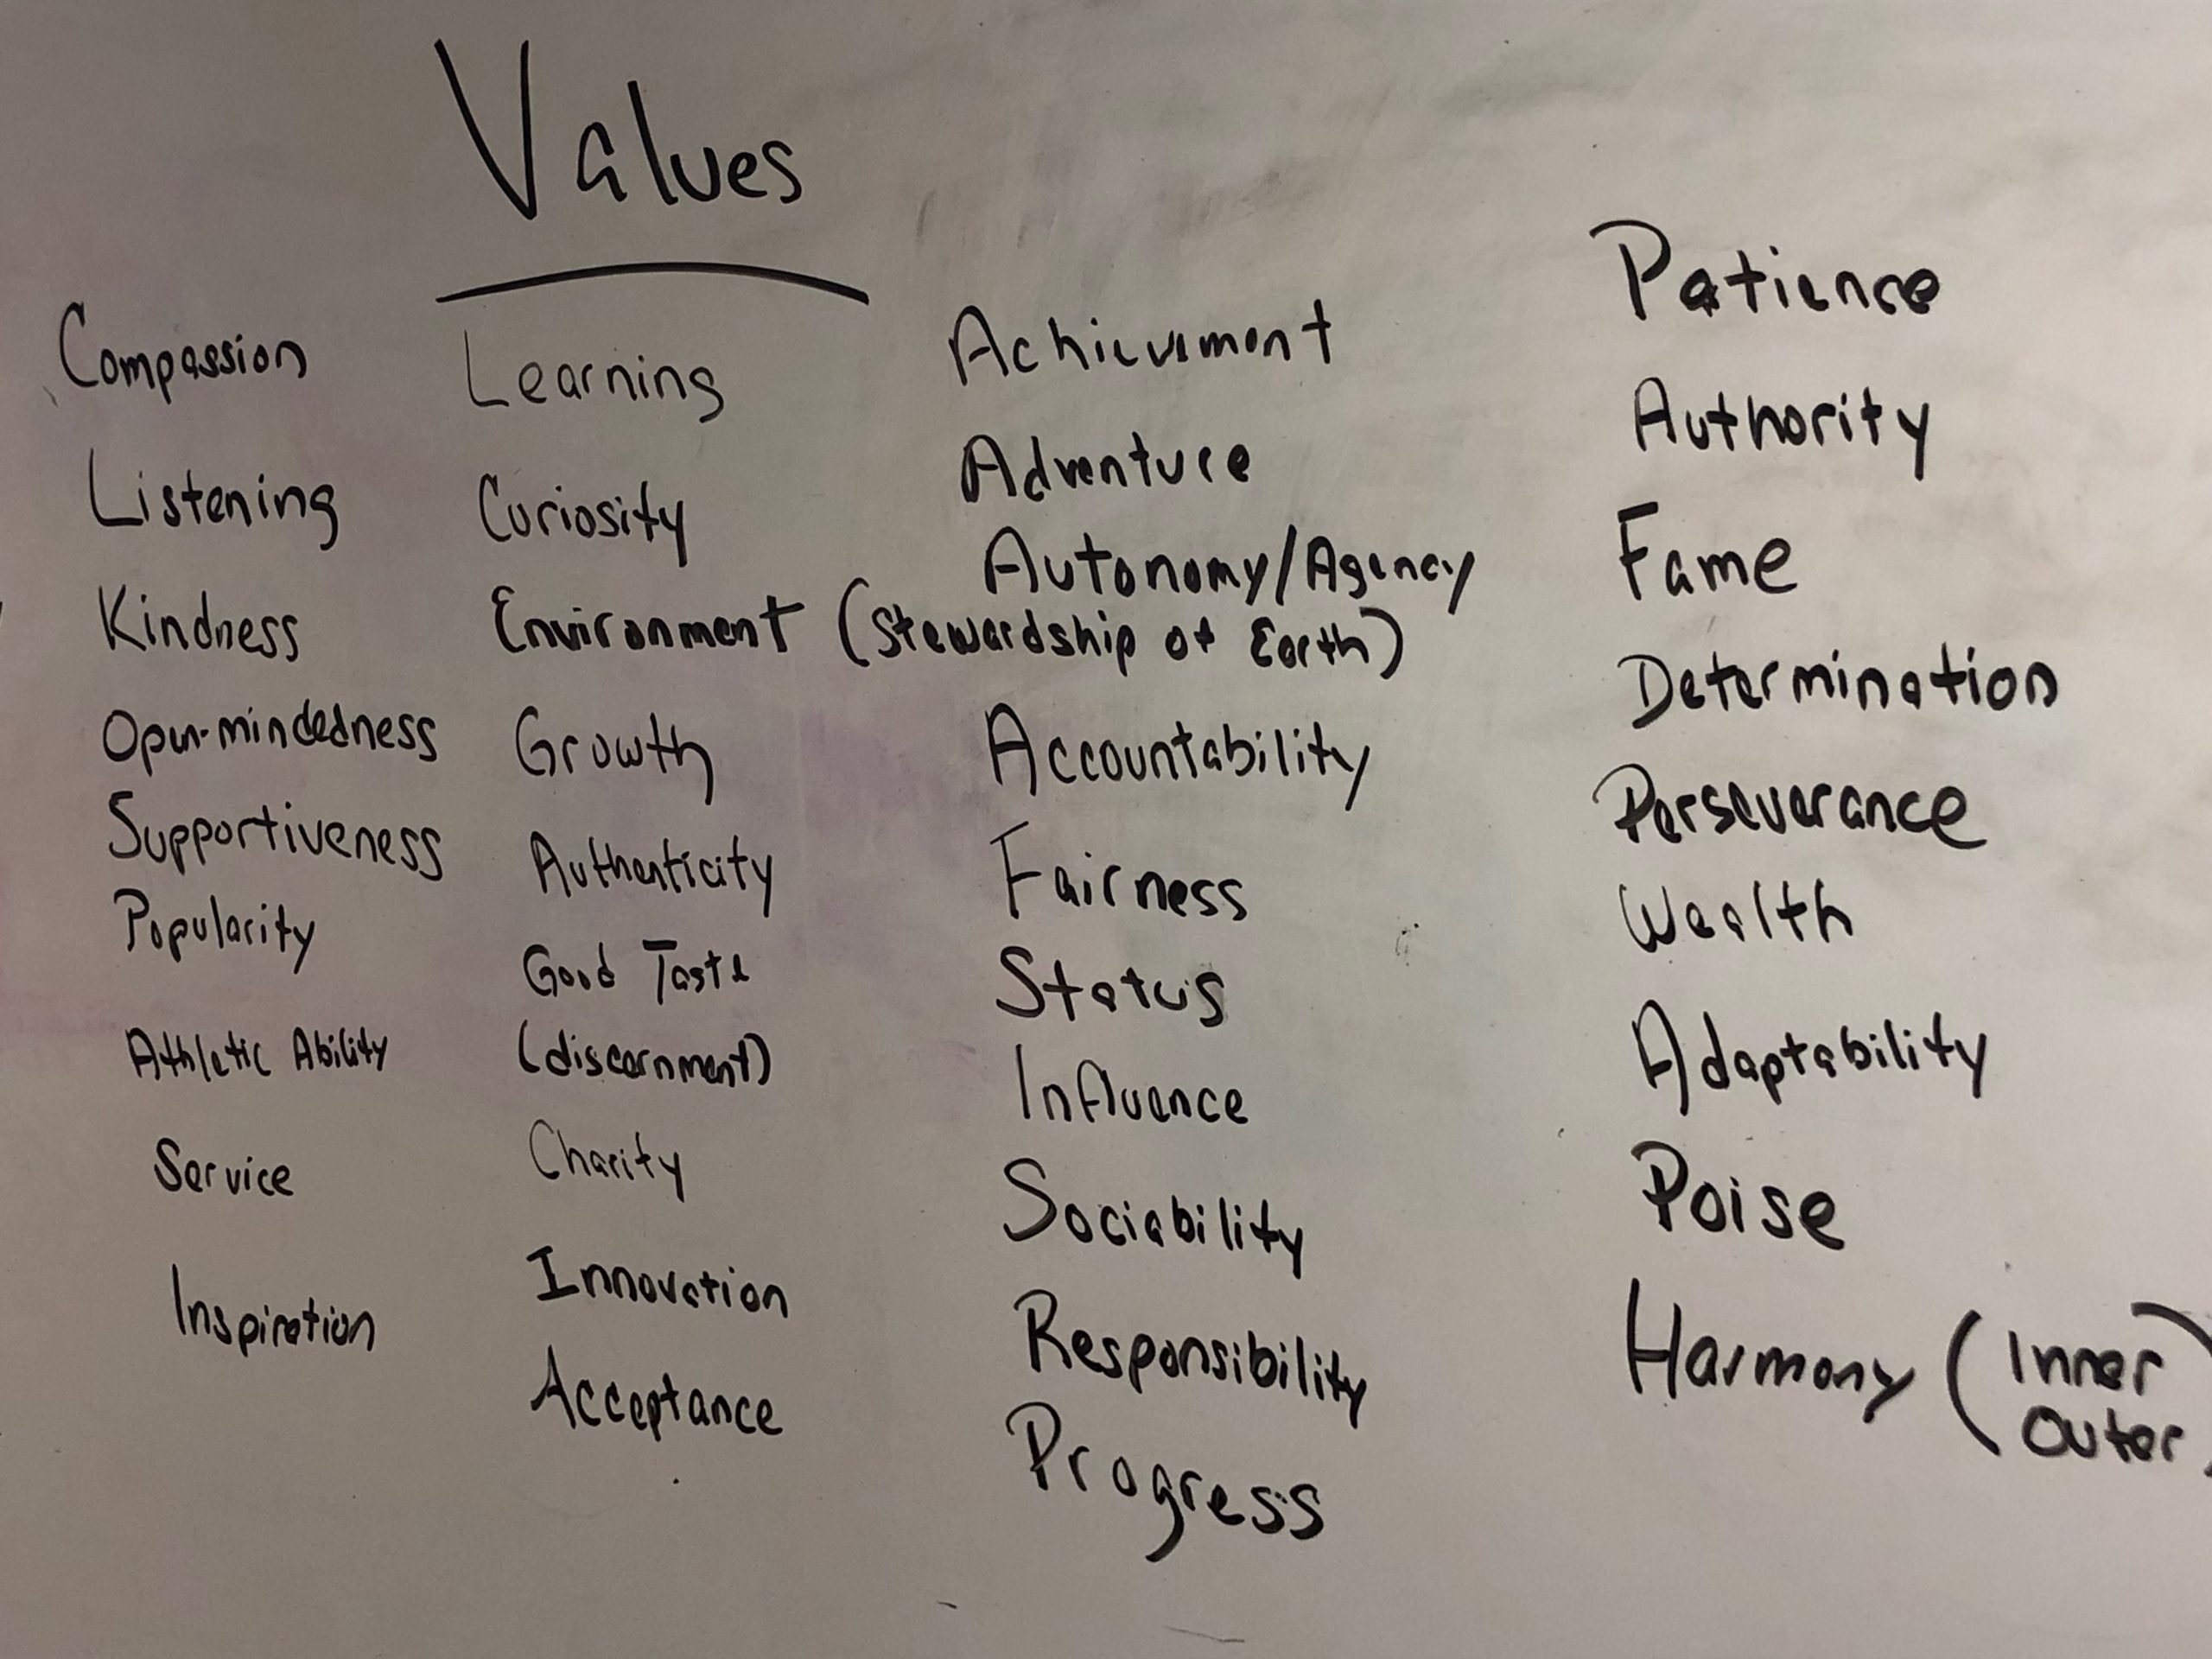 Values
Compassion
Listening
Kindness
Open-mindedness
Supportiveness
Popularity
Athletic Ability
Service
Inspiration
Learning
Curiosity
Environment (Stewardship of Earth)
Growth
Authenticity
Good Taste
(discernment)
Charity
Innovation
Acceptance
Achievement
Adventure
Autonomy/Agency
Accountability
Fairness
Status
Influence
Sociability
Responsibility
Progress
Patience
Authority
Fame
Determination
Perseverance
Wealth
Adaptability
Poise
Harmony (Inner
Outer)